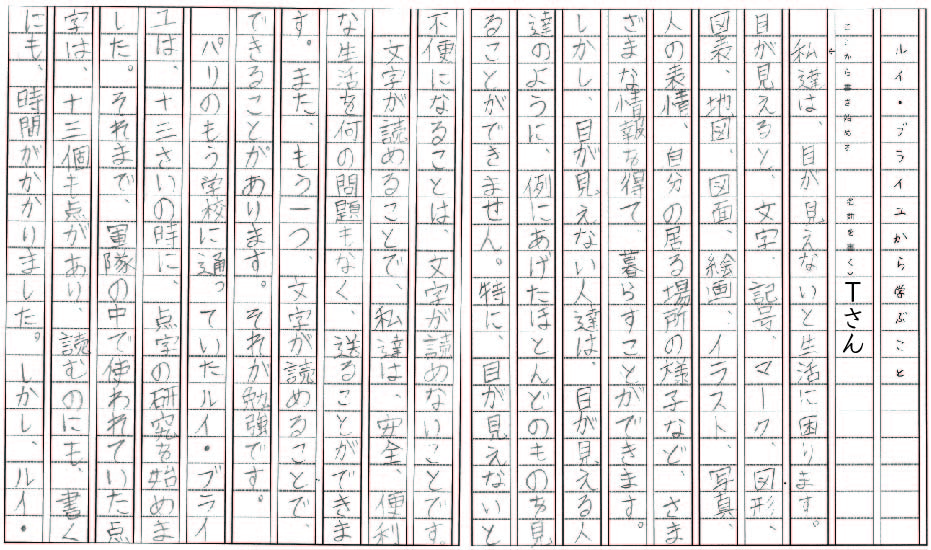 ルイ・ブライユから学ぶこと
ここから書き始める 名前を書く Tさん
私達は、目が見えないと生活に困ります。
目が見えると、文字、記号、マーク、図形、
図表、地図、図面、絵画、イラスト、写真、
人の表情、自分の居る場所の様子など、さま
ざまな情報を得て、暮らすことができます。
しかし、目が見えない人達は、目が見える人
達のように、例にあげたほとんどのものを見
ることができません。特に、目が見えないと
不便になることは、文字が読めないことです。
文字が読めることで、私達は、安全、便利
な生活を何の問題もなく、送ることができま
す。また、もう一つ、文字が読めることで、
できることがあります。それが勉強です。
パリのもう学校に通っていたルイ・ブライ
ユは、十三さいの時に、点字の研究を始めま
した。それまで、軍隊の中で使われていた点
字は、十三個も点があり、読むのにも、書く
にも、時間がかかりました。しかし、ルイ・